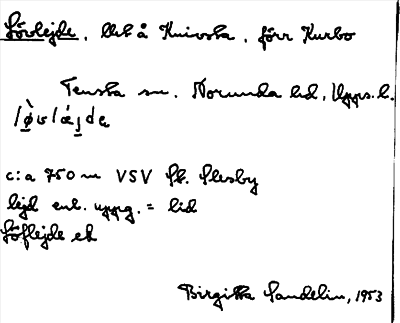 Lövlejde, bet å Knivsta, förr Kurbo
Tensta sn. Norunda hd, Upps. l.
c:a 750 m VSV St. Olesby
lejd enl. uppg. = lid
Löflejde ek
Birgitta Sandelin, 1953